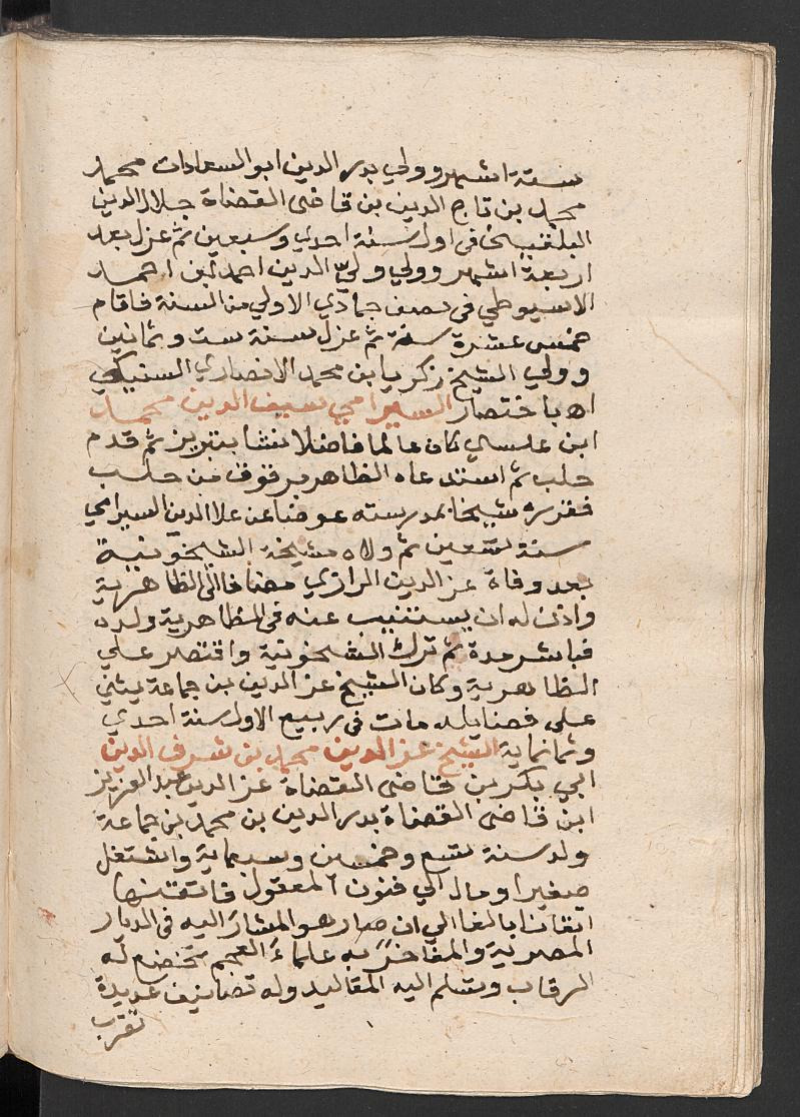 ستة اشهر وولي بدر الدين ابو السعادات محمد
محمد بن تاج الدين بن قاضى القضاة جلال الدين
البلقيني فى اول سنة احدي وسبعين ثم عزل بعد
اربعة اشهر وولي ولي الدين احمد بن احمد
الاسيوطي فى نصف جمادي الاولي من السنة فاقام
خمس عشرة سنة ثم عزل سنة ست وثمانين
وولي الشيخ زكريا بن محمد الانصاري السنيكي
اه باختصار السيرامي سيف الدين محمد
ابن عيسي كان عالما فاضلا نشا بتبريز ثم قدم
حلب ثم استدعاه الظاهر برقوق من حلب
فقرره شيخا بمدرسته عوضا عن علا الدين السيرامي
سنة تسعين ثم ولاه مشيخة الشيخونية
بعد وفاة عز الدين الرازي مضافا الى الظاهرية
واذن له ان يستنيب عنه فى الظاهرية ولده
فباشر مدة ثم ترك الشيخونية واقتصر علي
الظاهرية وكان الشيخ عز الدين بن جماعة يثني
علي فضايله مات فى ربيع الاول سنة احدي
وثمانماية الشيخ عز الدين محمد بن شرف الدين
ابي بكر بن قاضى القضاة عز الدين عبد العزيز
ابن قاضى القضاة بدر الدين بن محمد بن جماعة
ولد سنة تسع وخمسين وسبعماية واشتغل
صغيرا ومال الي فنون المعقول فاتقنها
اتقانا بالغا الي ان صار هو المشار اليه فى الديار
المصرية والمفاخر به علماء العجم تخضع له
الرقاب وتسلم اليه المقاليد وله تصانيف عديدة
تقرب